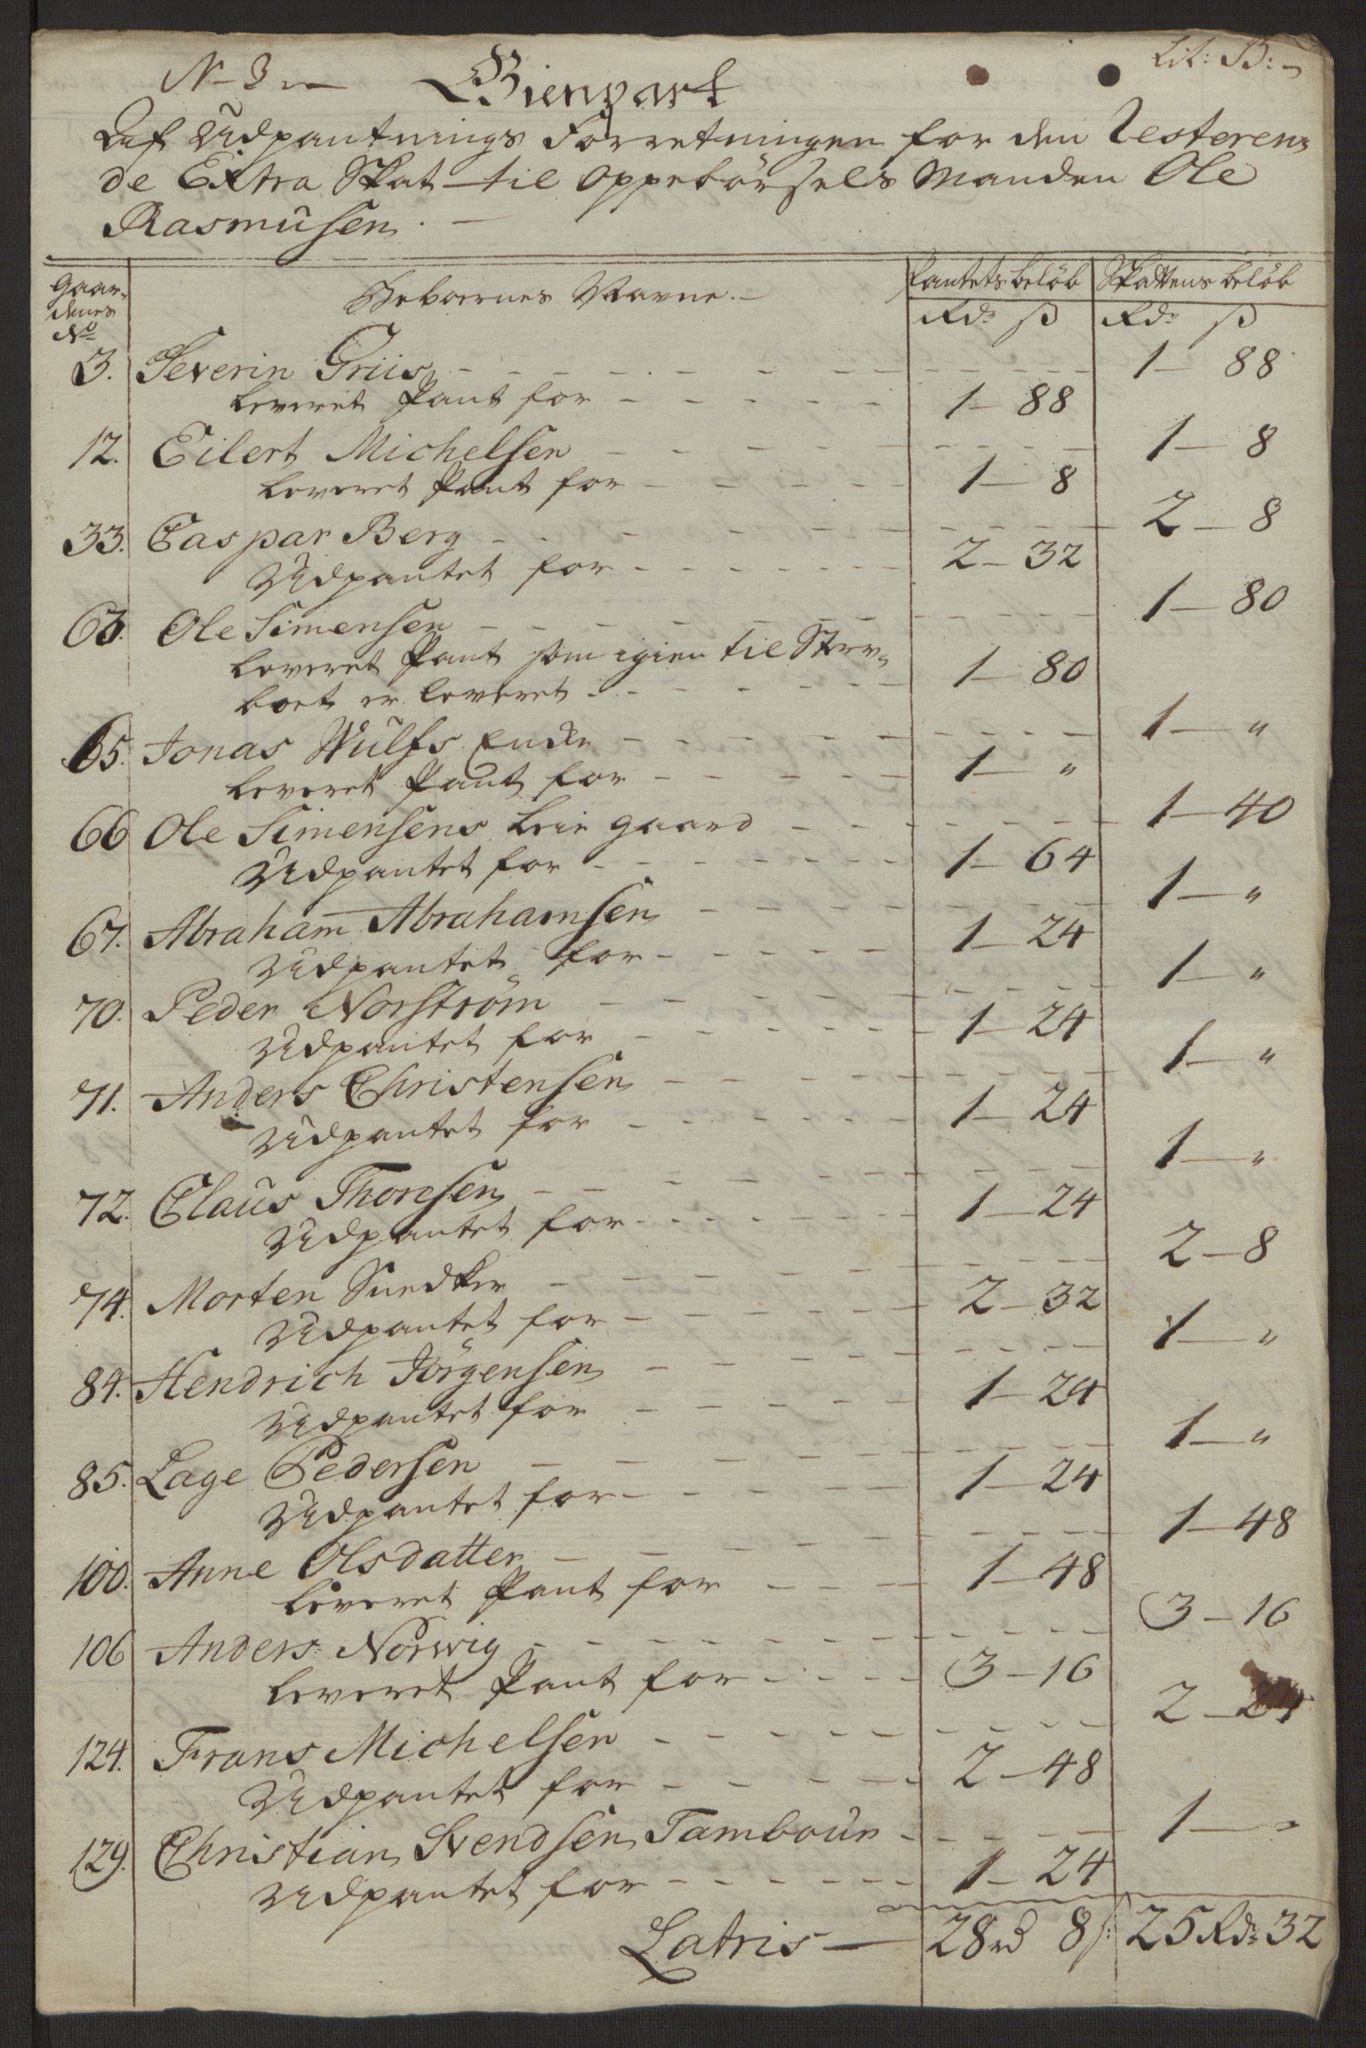 No 3
Lit: B:
Gienpart
Af Udpantnings Forretningen for den Resteren-
de Extra Skat til Oppebörsels Manden Ole
Rasmusen.
Gaar-
denes
No
Beboernes Navne.
Pantets beløb
Skattens beløb
Rdr ß Rdr ß
3. Severin Griis 1 - 88
leveret Pant for 1 - 88
12. Eilert Michelsen 1 - 8
leveret Pant for 1 - 8
33. Caspar Berg 2 - 8
Udpantet for 2 - 32
63. Ole Simensen 1 - 80
leveret Pant som igien til Sterv-
boet er leveret 1 - 80
65. Jonas Wulfs Enke 1 - "
leveret Pant for 1 - "
66 Ole Simensens leie gaard 1 - 40
Udpantet for 1 - 64
67. Abraham Abrahamsen 1 - "
Udpantet for 1 - 24
70. Peder Norström 1 - "
Udpantet for 1 - 24
71. Anders Christensen 1 - "
Udpantet for 1 - 24
72. Claus Thoresen 1 - "
Udpantet for 1 - 24
74. Morten Snedker 2 - 8
Udpantet for 2 - 32
84. Hendrich Jörgensen 1 - "
Udpantet for 1 - 24
85. Lage Pedersen 1 - "
Udpantet for 1 - 24
100. Anne Olsdatter 1 - 48
leveret Pant for 1 - 48
106 Anders Norwig 3 - 16
leveret Pant for 3 - 16
124. Frans Michelsen 2 - 24
Udpantet for 2 - 48
129. Christian Svendsen Tambour 1 - "
Udpantet for 1 - 24
Latris 28 rd 8 s: 25 Rdr 32